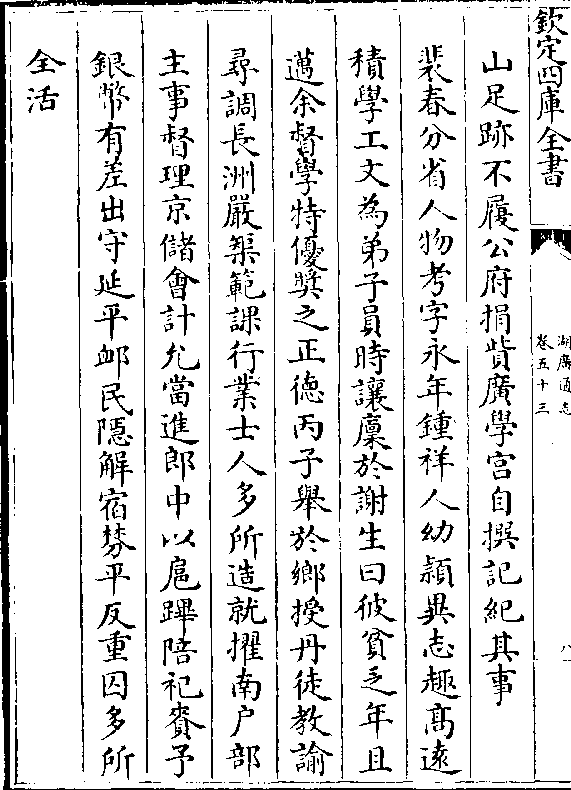 欽定四庫全書
湖廣通志
卷五十三
山足跡不履公府捐貲廣學宮自撰記紀其事
裴春分省人物考字永年鍾祥人幼穎異志趣髙遠
積學工文為弟子員時讓廩於謝生曰彼貧乏年且
邁余督學特優奬之正徳丙子舉於鄉授丹徒教諭
尋調長洲嚴榘範課行業士人多所造就擢南户部
主事督理京儲會計允當進郎中以扈蹕陪祀賚予
銀幣有差出守延平䘏民隠解宿棼平反重囚多所
全活